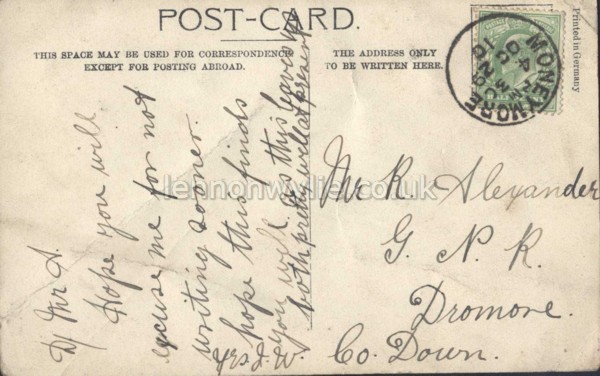 POST-CARD.
THIS SPACE MAY BE USED FOR CORRESPONDENCE
EXCEPT FOR POSTING ABROAD.
THE ADDRESS ONLY
TO BE WRITTEN HERE.
Printed in Germany
MONEYMORE
D/ Mr A.
Hope you will
excuse me for not
writing sooner.
hope this finds
you well as this leaves us
both pretty well at present
Yrs J. W.
Mr R. Alexander
G. N. R.
Dromore.
Co. Down.
lennonwylie.co.uk